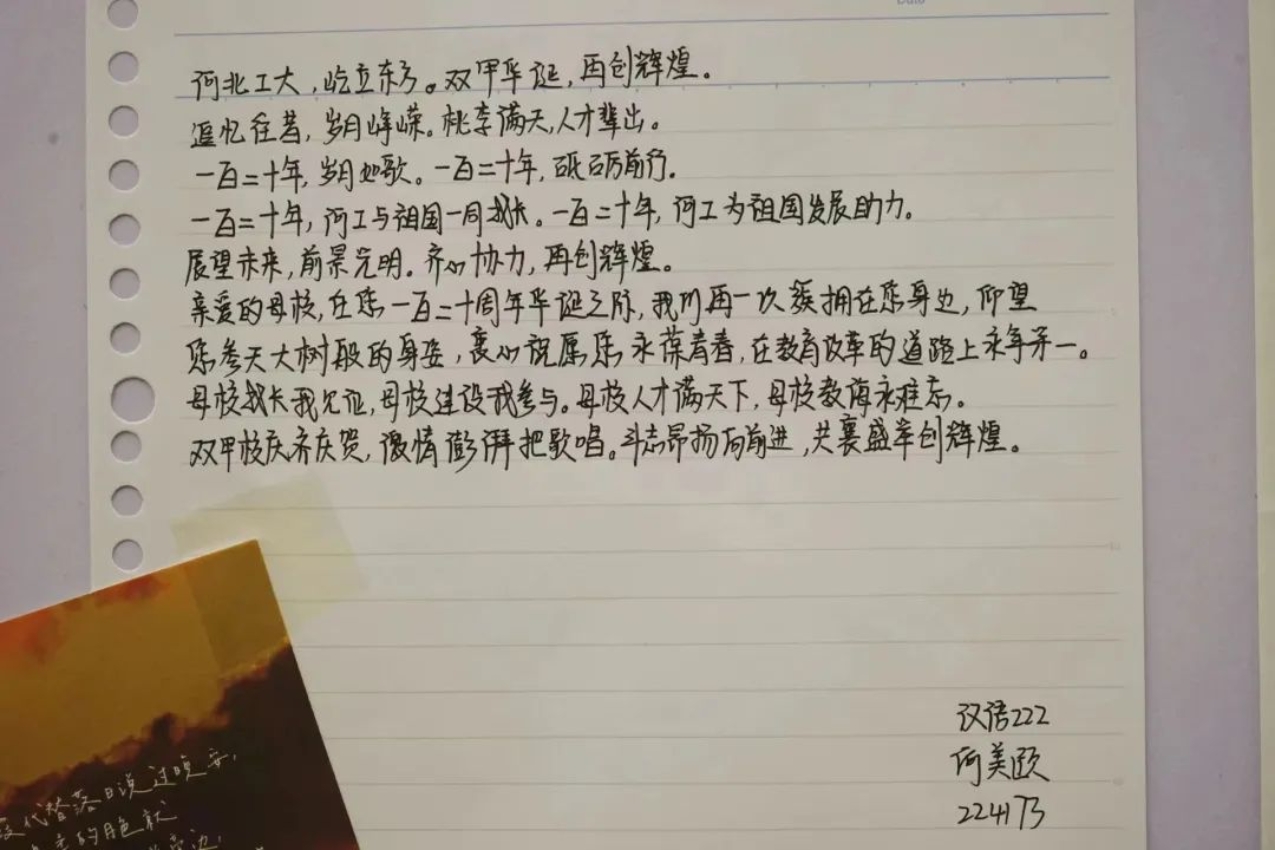 河北工大，屹立东方。双甲华诞，再创辉煌。
追忆往昔，岁月峥嵘。桃李满天，人才辈出。
一百二十年，岁月如歌。一百二十年，砥砺前行。
一百二十年，河工与祖国一同成长。一百二十年，河工为祖国发展助力。
展望未来，前景光明。齐心协力，再创辉煌。
亲爱的母校，在您一百二十周年华诞之际，我们再一次簇拥在您身边，仰望
您参天大树般的身姿，衷心祝愿您永葆青春，在教育改革的道路上永争第一。
母校成长我见证，母校建设我参与。母校人才满天下，母校教诲永难忘。
双甲校庆齐庆贺，激情澎湃把歌唱。斗志昂扬向前进，共襄盛举创辉煌。
汉语222
何美颐
224173
代替落日说过晚安，
的月色就
边，